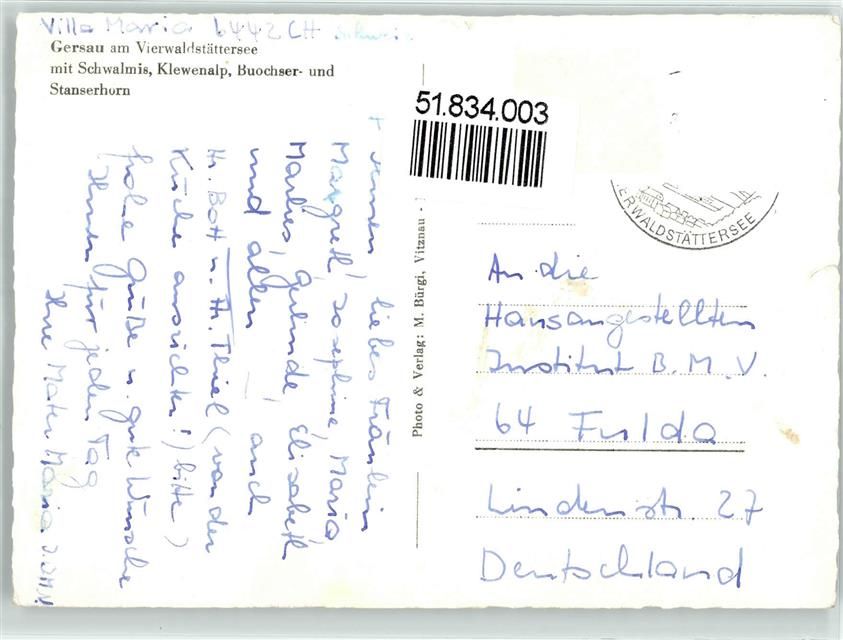 Villa Maria 6442 CH Schweiz
Gersau am Vierwaldstättersee
mit Schwalmis, Klewenalp, Buochser- und
Stanserhorn
51.834.003
ERWALDSTÄTTERSEE
Photo & Verlag: M. Bürgi, Vitznau -
Ihnen, liebes Fräulein
Margreth, Josephine, Maria
Marlies, Gerlinde Elisabeth
und allen – auch
Hr. Bott u. Hr. Thiel (von der
Küche ausrichten!) bitte)
frohe Grüße u. gute Wünsche
Ihnen für jeden Tag
Ihre Mater Maria
An die
Hausangestellten
Institut B. M. V.
64 Fulda
Lindenstr. 27
Deutschland